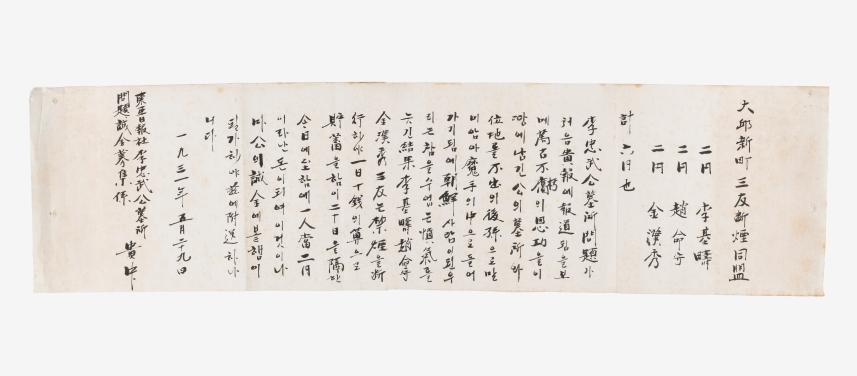 大邱新町三友断煙同盟
二円 李基疇
二円 趙命守
二円 金漢秀
計 六円也
李忠武公墓所問題가
처음貴報에報道됨을보
매萬古不朽의恩功을이
땅에남긴公의墓所와
位地를不忠의後孫으로말
미암아魔手의中으로들어
가기됨에朝鮮사람이된우
리는참을수업는憤氣를
늣긴結果李基疇趙命守
金漢秀三友는禁煙을断
行하야一日十銭의算으로
貯蓄을함이二十日을隔한
今日에至함에一人當二円
이라난돈이되여이것이나
마公의誠金에봇햄이
될가하야玆에附送하나
니다
一九三一年五月二十九日
東亜日報社李忠武公墓所
問題誠金募集係
貴中